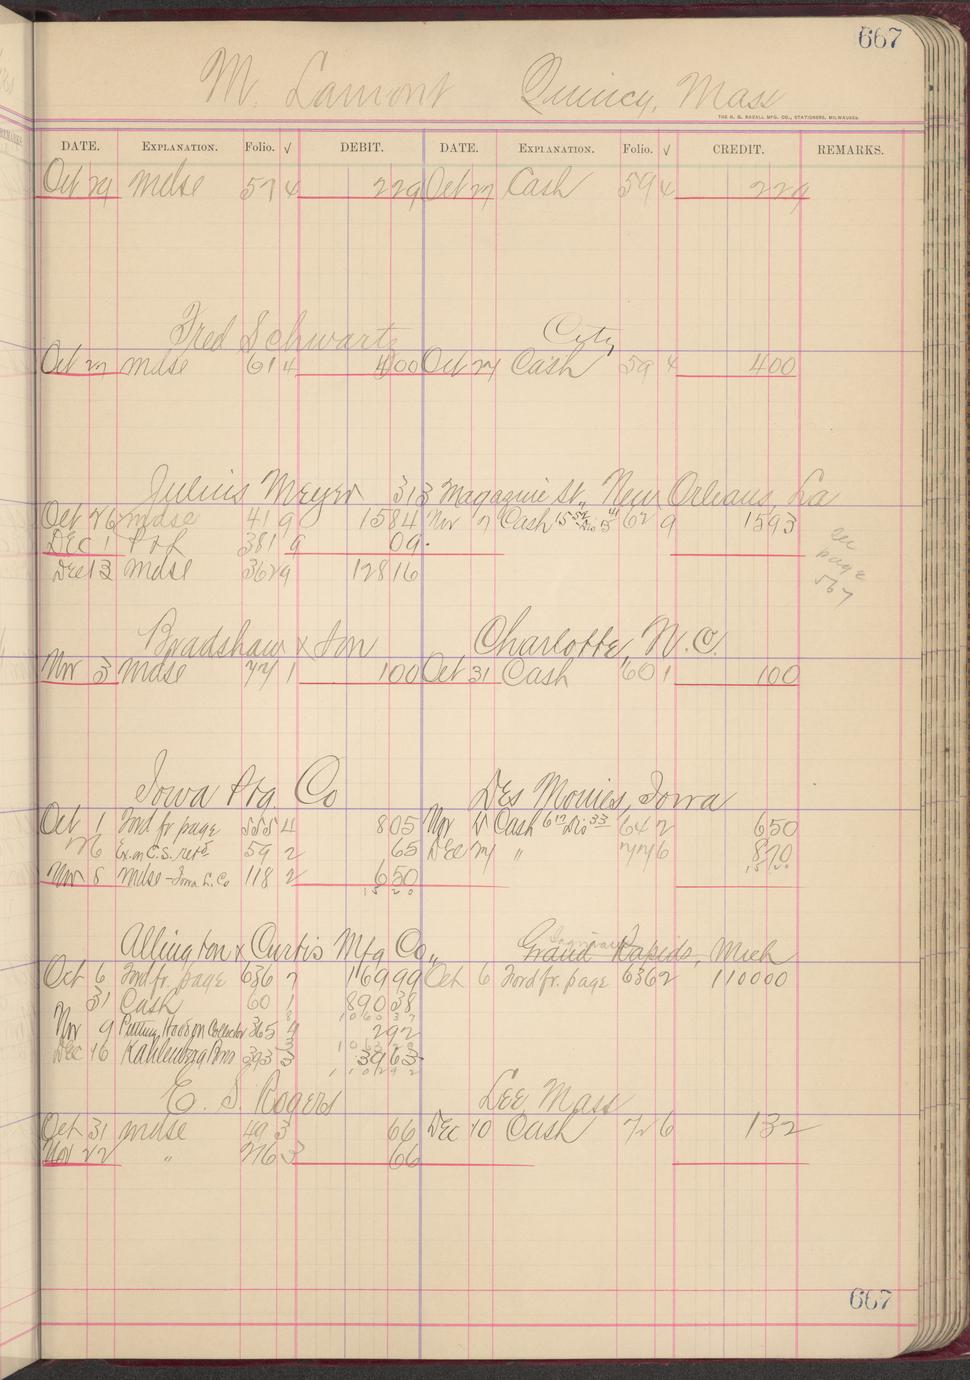 667
M. Lamont Quincy, Mass
THE H. G. RAZALL MFG. CO., STATIONERS, MILWAUKEE.
DATE. EXPLANATION. Folio. √ DEBIT. DATE. EXPLANATION. Folio. √ CREDIT. REMARKS.
Oct 29 Mdse 57 4 229 Oct 27 Cash 59 4 229
Fred Schwartz City
Oct 27 Mdse 61 4 400 Oct 27 Cash 59 4 400
Julius Meyer 313 Magazine St., New Orleans, La
Oct 26 Mdse 41 9 1584 Nov 7 Cash 62 9 1593
Dec 1 P & L 381 9 09
Dec 13 Mdse 362 9 12816
see
page
567
Bradshaw & Son Charlotte, N.C.
Nov 3 Mdse 77 1 100 Oct 31 Cash 60 1 100
Iowa Ptg. Co Des Monies, Iowa
Oct 1 Ford fr page 555 4 805 Nov Cash 64 2 650
26 Ex. on C.S. retd 59 2 65 Dec 27 " 77 6 870
Nov 5 Mdse - Iowa L. Co 118 2 650
1520
1520
Allington & Curtis Mfg Co., Grand Rapids, Mich
Saginaw
Oct 6 Ford fr. page 636 7 16999 Oct 6 Ford fr. page 636 2 110000
31 Cash 60 1 89038
106037
Nov 9 365 4 292
106329
Dec 16 Kahlenberg Bros 393 3 3963
110292
E. S. Rogers Lee Mass
Oct 31 Mdse 49 3 66 Dec 10 Cash 72 6 132
Nov 22 " 276 3 66
667